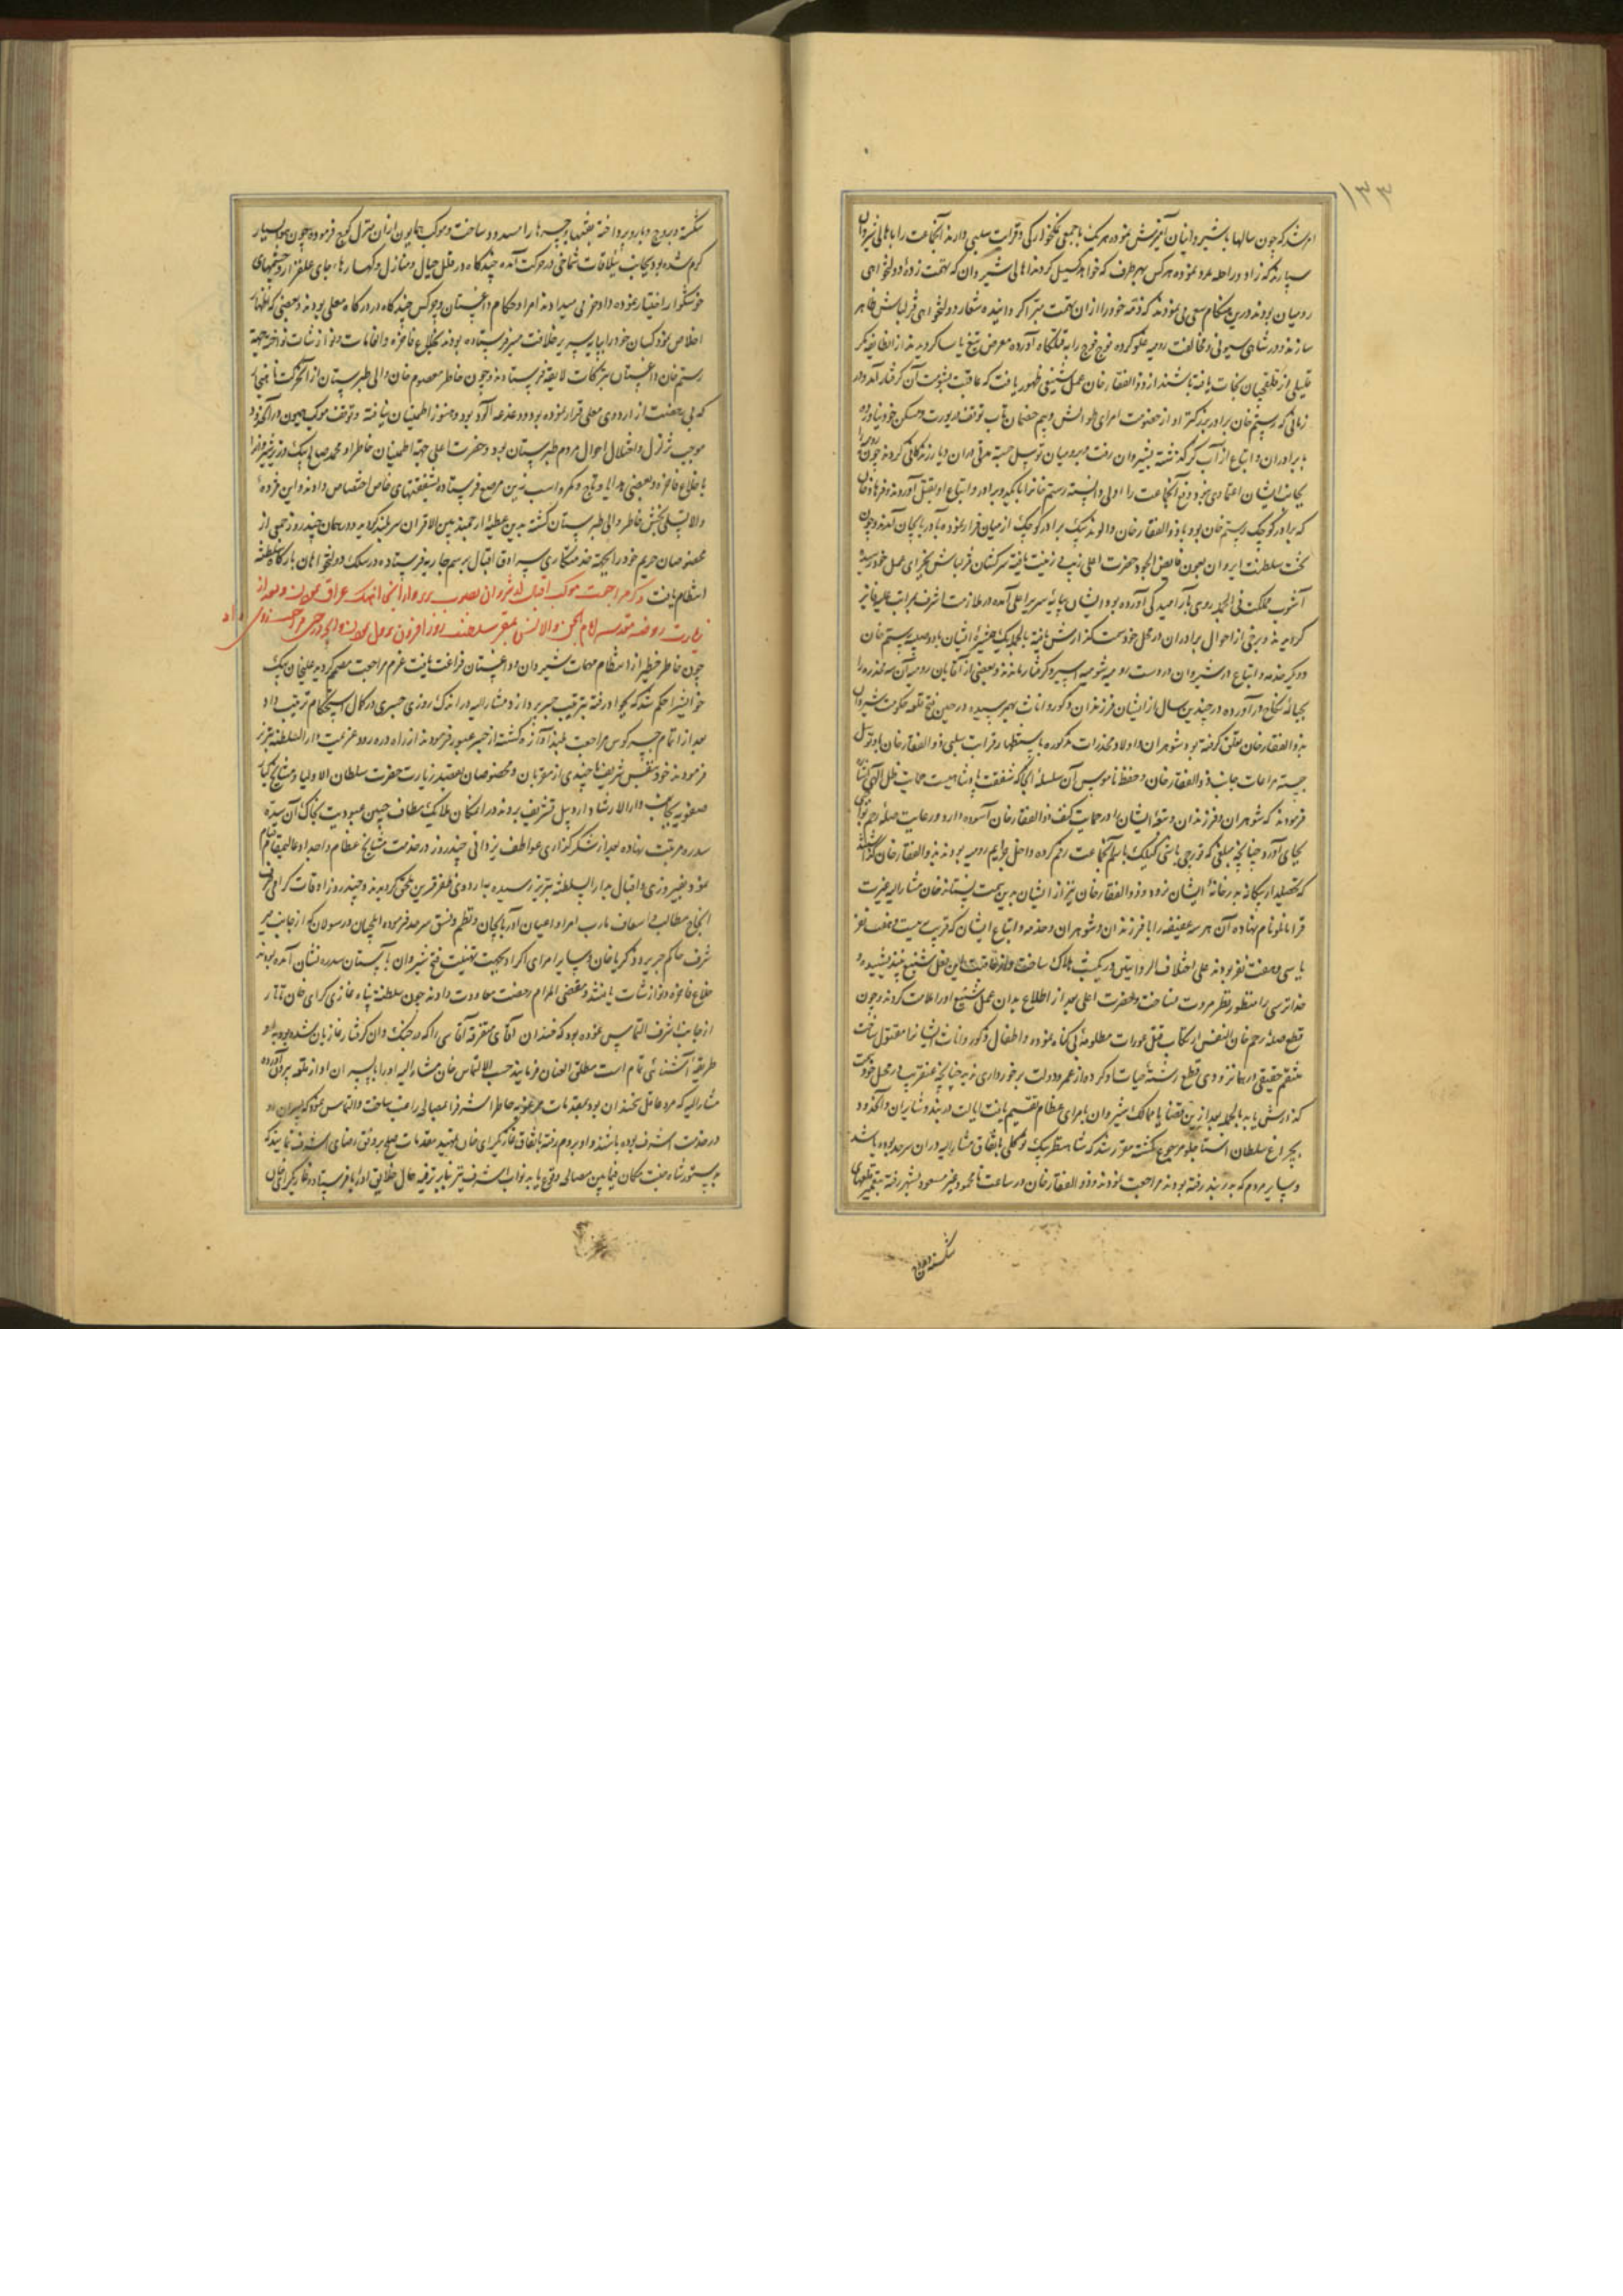 ۱۳۳
امر شد که چون سالها با شیروانیان آمیزش نموده هر یک با جمعی نمکخوارکی و قرابت سلبی دارند آنجماعت را باهالی شیروان
سپارند که زاد و راحله مدد نموده هر کس بهر طرف که خواهد کسیل کردند اهالی شیروان که بتهمت زده دولتخواهی
رومیان بودند درین هنکام سعی می نمودند که ذمه خود را از ان تهمت مبرا کردانیده شعار دولتخواهی قزلباش ظاهر
سازند و در شاهی سیونی و مخالفت رومیه غلو کرده فوج فوج را به قتلکاه آورده معرض تیغ یاسا کردیدند از انطایفه مکر
قلیلی از قلقچیان نجات یافته باشند از ذوالفقار خان عمل شنیعی ظهور یافت که عاقبت بشومت آن کرفتار آمد و در
زمانی که رستم خان برادر بزرکتر او از خصومت امرای طوالش و بیم خصمان تاب توقف در یورت و مسکن خود نیاورده
با برادران و اتباع از آب کر گذشته بشیروان رفت و برومیان توسل جسته مدتی در ان دیار زندکانی کردند چون رومیه را
بجانب ایشان اعتمادی نبود دفع آنجماعت را اولی دانسته رستم خان را با یکدو برادر و اتباع او بقتل آوردند و فرهاد خان
که برادر کوچک رستم خان بود با ذوالفقار خان و الوند بیک برادر کوچک از میان فرار نموده بآذربایجان آمدند و چون
تخت سلطنت ایروان بیمن فایض الجود حضرت اعلی زیب و زینت یافته سرکشان قزلباش بجزای عمل خود رسیده
آشوب مملکت فی الجمله روی بآرامیدکی آورده بود ایشان بپایه سریر اعلی آمده در ملازمت اشرف بمراتب علیه فایز
کردیدند و برخی از احوال برادران در محل خود سمت گذارش یافته بالجمله یک همشیره ایشان با دو صبیه رستم خان
و دیکر خدمه و اتباع در شیروان در دست رومیه شومیه اسیر و کرفتار ماندند و بعضی از آقایان رومیه آن سه مخدره را
بحباله نکاح درآورده در چندین سال از ایشان فرزندان ذکور و اناث بهم رسیده در حین فتح قلعه حکومت شیروان
بذوالفقار خان تعلق کرفته بود شوهران و اولاد مخدرات مذکوره باستظهار قرابت سلبی ذوالفقار خان بدو توسل
جسته مراعات جانب ذوالفقار خان و حفظ ناموس آن سلسله انجا که شفقت پادشاهیست حمایت ظل الهی ایشان
فرمودند که شوهران و فرزندان و متعه ایشان را در حمایت کنف ذوالفقار خان آسوده دارد و رعایت صله رحم
بجای آورد چنانچه مبلغی که قورچی باشی کیلک باسم آنجماعت رقم کرده داخل جرایم رومیه بودند بذوالفقار خان
که تحصیلدار بیکانه به در خانه ایشان نرود و ذوالفقار خان نیز از ایشان بدین جهت بستاند خان مشارالیه غیرت
قرامانلو نام نهاده آن هر سه عفیفه را با فرزندان و شوهران و خدمه و اتباع ایشان که قریب بیست و هفت نفر
یا سی و هفت نفر بودند علی اختلاف الروایتین در یکشب هلاک ساخت و از عاقبت این فعل شنیع نیندیشیده
خدا ترسی را منظور نظر مروت نساخت و حضرت اعلی بعد از اطلاع بدان عمل شنیع او را ملامت کردند و چون
قطع صله رحم خان النفس ارتکاب قتل عورات مظلومه بی کناه نموده و اطفال ذکور و اناث ایشان را مقتول ساخت
منتقم حقیقی در همان زودی قطع رشته حیات او کرد و از عمر و دولت برخورداری ندید چنانچه عنقریب در محل خود سمت
گذارش یابد بالجمله بعد ازین قضایا ممالک شیروان بامرای عظام تقسیم یافت ایالت دربند و شابران و آنحدود
بچراغ سلطان استاجلو مرجوع گشته مقرر شد که شاه نظر بیک توکلی باتفاق مشارالیه در ان سرحد بوده باشد
و سایر مردم که به دربند رفته بودند مراجعت نمودند و ذوالفقار خان در ساعت محمود و غیر مسعود بشهر رفته بتعمیر قلعهای
شکسته و ان
شکسته و بروج و باره پرداخته نقبها و رخنه ها را مسدود ساخت و موکب همایون از ان منزل کوچ فرموده چون هوا بسیار
کرم شده بود بجانب ییلاقات شماخی در حرکت آمده چندکاه در قلل جبال و منازل و کهسارها جای علفزار و چشمهای
خوشکوار اختیار نموده داد خرمی میدادند امرا و حکام داغستان و چرکس چندکاه در درکاه معلی بودند و بعضی که اظهار
اخلاص نموده کسان خود را بپایه سریر خلافت مسیر فرستاده بودند بخلاع فاخره و انعامات و نوازشات نواخته جهة
رستم خان داغستان تبرکات لایقه فرستادند و چون خاطر معصوم خان والی طبرستان از آنحرکت ناهنجار
که بی رخصت از اردوی معلی فرار نموده بود دغدغه آلود بود و هنوز اطمینان نیافته و توقف موکب همیون در آنحدود
موجب تزلزل و اختلال احوال مردم طبرستان بود حضرت اعلی جهة اطمینان خاطر او محمد صالح بیک
با خلاع فاخره و بعضی هدایا و تاج و کمر و اسب زین مرصع فرستاده بشفقتهای خاص اختصاص دادند و این مژده
والا تسلی بخش خاطر والی طبرستان گشته بدین عطیه ارجمند بین الاقران سربلند کردید و در همان چند روز جمعی از
مخصوصان حریم خود را بجهة خدمتکاری سرادق اقبال برسم جاریه فرستاده در سلک دولتخواهان بارکاه سلطنه
انتظام یافت ذکر مراجعت موکب اقبال از شروان بصوب و از آنجا بملک عراق و بعد از
زیارت روضه مقدسه امام الجن والانس بمقر سلطنت روزافزون
چون خاطر خطیر از انتظام مهمات شیروان و داغستان فراغت یافت عزم مراجعت مصمم کردید علیخان بیک
خوانیسرا حکم شد که بجواد رفته بترتیب جسر پردازد مشارالیه در اندک روزی جسری در کمال استحکام ترتیب داد
بعد از اتمام جسر کوس مراجعت بلندآوازه کشته از جسر عبور فرمودند از راه دره رود عزیمت دارالسلطنه تبریز
فرمودند خود بنفس شریف با چندی از مقربان و مخصوصان بقصد زیارت حضرت سلطان الاولیا و مشایخ کبار
صفویه بجانب دارالارشاد اردبیل تشریف بردند در ان مکان ملایک مطاف جبین عبودیت بخاک آن سده
سدره مرتبت نهاده بعد از شکرگذاری عواطف یزدانی چند روز در خدمت مشایخ عظام و اجداد عالیمقام قیام
نمود و بفیروزی و اقبال بدارالسلطنه تبریز رسیده به اردوی ظفر قرین ملحق کردیدند و چند روز اوقات کرامی صرف
انجاح مطالب و اسعاف مآرب امرا و اعیان آذربایجان و نظم و نسق سرحد فرموده ایلچیان و رسولان که از جانب میر
شرف حاکم جزیره و ذکریا خان و سایر امرای اکراد بجهت تهنیت فتح شیروان بآستان سدره نشان آمده بودند
خلاع فاخره و نوازشات یافتند و مقضی المرام رخصت معاودت دادند چون سلطنة پناه غازی کرای خان تاتار
از جانب اشرف التماس نموده بود که خندان آقای متفرقه آقاسی را که در جنک وان کرفتار غازیان شده بود
طریقه آشنائی تمام است مطلق العنان فرمایند حسب الالتماس خان مشارالیه او را با پسران او از قلعه برآورده
مشارالیه که مرد عاقل سخندان بود بمقدمات مرغوبه خاطر اشرف را بمصالحه راغب ساخت و التماس نمود که پسران او
در خدمت اشرف بوده باشند و او بروم رفته باتفاق غازیکرای خان تمهید مقدمات صلح بر وفق رضای اشرف نمایند که
بدستور شاه جنت مکان فیمابین مصالحه وقوع یابد نواب اشرف نیز بنابر ترفیه حال خلایق او را با فرستاده غازیکرای خان